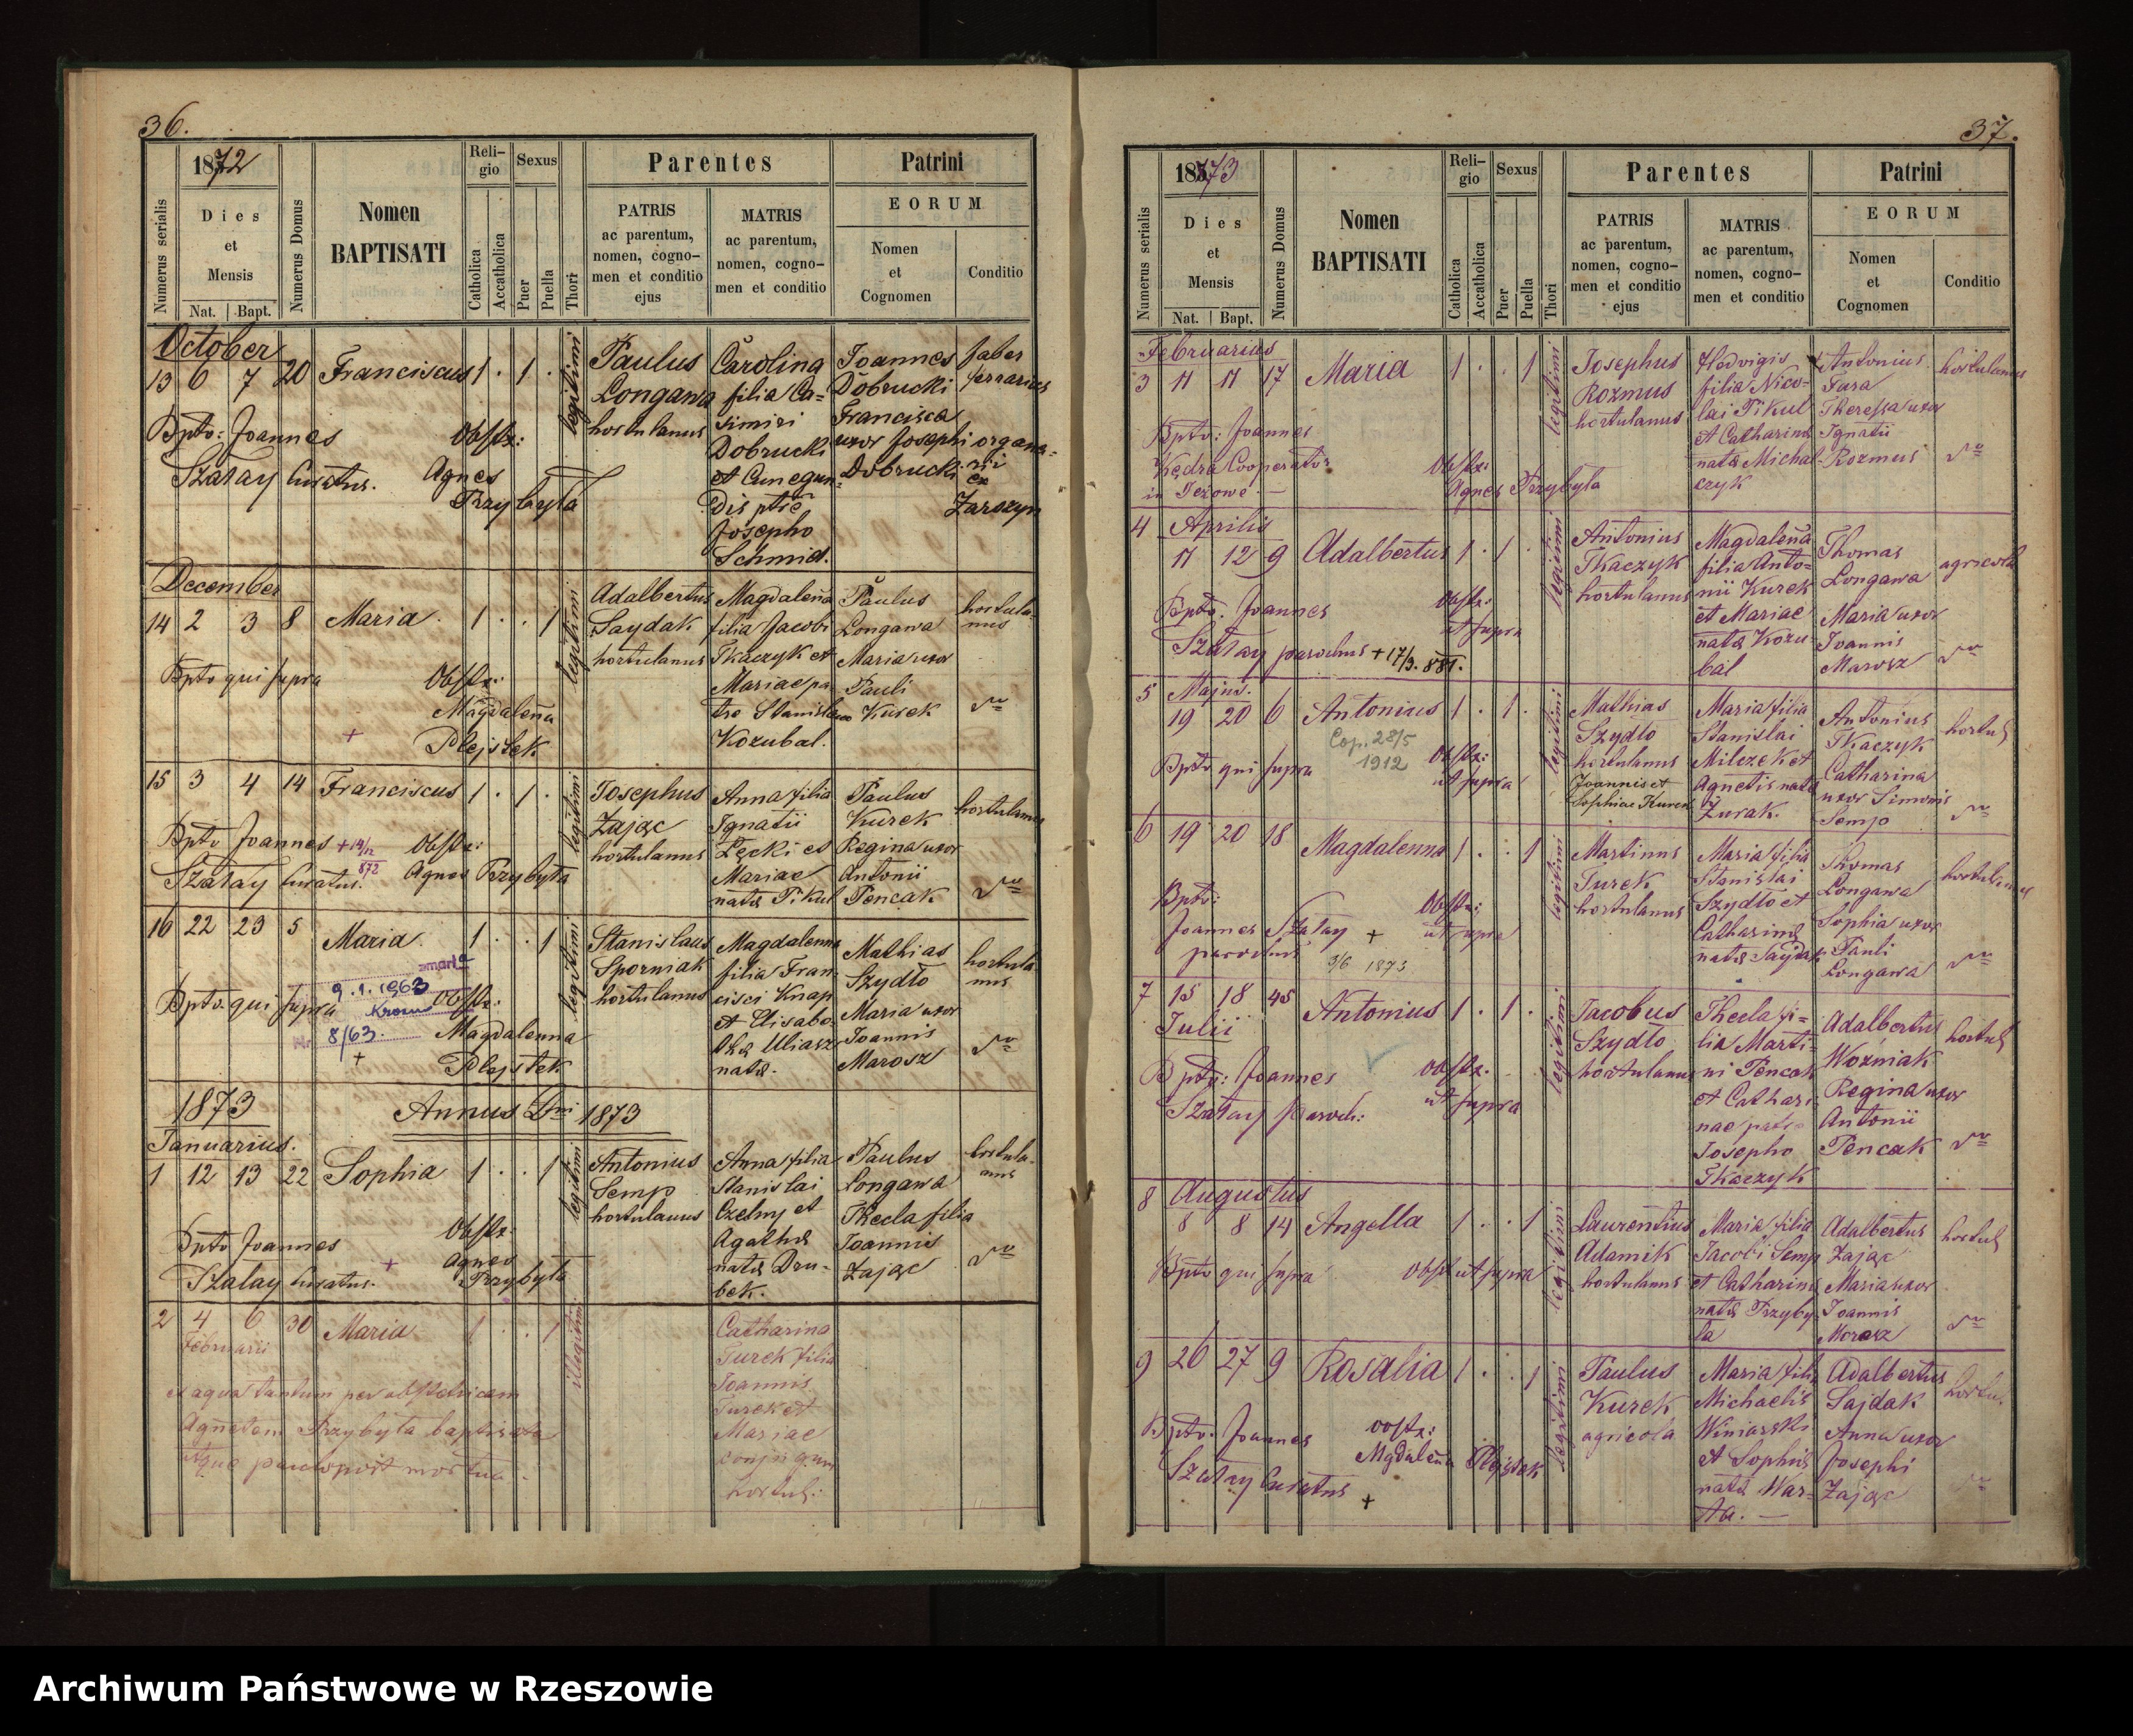 36.
1872
Numerus serialis
Dies
et
Mensis
Nat. Bapt.
Numerus Domus
Nomen
BAPTISATI
Reli-
gio
Catholica
Accatholica
Sexus
Puer
Puella
Thori
Parentes
PATRIS
ac parentum,
nomen, cogno-
men et conditio
ejus
MATRIS
ac parentum,
nomen, cogno-
men et conditio
Patrini
EORUM
Nomen
et
Cognomen
Conditio
October
13 6 7 20 Franciscus 1 . 1 . legitimi
Paulus
Longawa
hortulanus
Carolina
filia Ca=
simiri
Dobrucki
et Cunegun=
dis
Josepho
Schmid.
Joannes
Dobrucki
Francisca
uxor Josephi
Dobrucki
faber
ferrarius
organa=
rii
ex
Zarszyn
Bpto: Joannes
Szałay Curatus.
Obstx:
Agnes
Przybyła
December
14 2 3 8 Maria. 1 . . 1 legitimi
Adalbertus
Saydak
hortulanus
Magdalena
filia Jacobi
Tkaczyk et
Mariae pa
tre Stanislao
Kozubal.
Paulus
Longawa
Maria uxor
Pauli
Kurek
hortula-
nus
Bpto qui supra
Obstx:
Magdalena
Plejstek
+
15 3 4 14 Franciscus 1 . 1 . legitimi
Josephus
Zając
hortulanus
Anna filia
Ignatii
Łęcki et
Mariae
nata Pikul
Paulus
Kurek
Regina uxor
Antonii
Pencak
hortulanus
Bpto Joannes +14/12
872
Szałay Curatus.
Obstx:
Agnes Przybyła
16 22 23 5 Maria. 1 . . 1 legitimi
Stanislaus
Sporniak
hortulanus
Magdalenna
filia Fran
cisci Knap
et Elisabe
tha Uliasz
nata.
Mathias
Szydło
Maria uxor
Joannis
Marosz
hortula
nus
zmarła
9.1.1963
Krosno
Nr 8/63.
+
Bpto qui supra
Obstx:
Magdalenna
Plejstek
1873
Annus Dni 1873
Januarius.
1 12 13 22 Sophia 1 . . 1 legitimi
Antonius
Semp
hortulanus
Anna filia
Stanislai
Czelny et
Agatha
nata Dru-
bek.
Paulus
Longawa
Thecla filia
Joannis
Zając
hortula-
nus
Bpto Joannes
Szałay Curatus.
+
Obstx:
Agnes
Przybyła
2 4 6 30 Maria 1 . . 1 illegitimi
Februarii
Catharina
Turek filia
Joannis
Turek et
Mariae
conjugum
hortul:
ex aqua tantum per obstetricem
Agnetem Przybyła baptisata
atque paulo post mortua.
37.
1873
Numerus serialis
Dies
et
Mensis
Nat. Bapt.
Numerus Domus
Nomen
BAPTISATI
Reli-
gio
Catholica
Accatholica
Sexus
Puer
Puella
Thori
Parentes
PATRIS
ac parentum,
nomen, cogno-
men et conditio
ejus
MATRIS
ac parentum,
nomen, cogno-
men et conditio
Patrini
EORUM
Nomen
et
Cognomen
Conditio
Februarius
3 11 11 17 Maria 1 . . 1 legitimi
Josephus
Rozmus
hortulanus
Hedvigis
filia Nico-
lai Pikul
et Catharina
nata Michal
czyk
Antonius
Fara
Theressa uxor
Ignatii
Rozmus
hortulanus
Bpto: Joannes
Kędra Cooperator
in Jeżowe.
Obstx:
Agnes Przybyła
4 Aprilis
11 12 9 Adalbertus 1 . 1 . legitimi
Antonius
Tkaczyk
hortulanus
Magdalena
filia Anto=
nii Kurek
et Mariae
nata Kozu-
bal
Thomas
Longawa
Maria uxor
Joannis
Marosz
agricola
Bpto: Joannes
Szałay parochus +17/3. 881.
Obstx:
ut supra
5 Majus.
19 20 6 Antonius 1 . 1 . legitimi
Cop. 28/5
1912
Mathias
Szydło
hortulanus
Joannis et
Sophiae Kurek
Maria filia
Stanislai
Milczek et
Agnetis nata
Żurak.
Antonius
Tkaczyk
Catharina
uxor Simonis
Semp
hortul
Bpto qui supra
Obstx:
ut supra
6 19 20 18 Magdalenna 1 . . 1 legitimi
Martinus
Turek
hortulanus
Maria filia
Stanislai
Szydło et
Catharina
nata Sajdak
Thomas
Longawa
Sophia uxor
Pauli
Longawa
hortulanus
Bpto:
Joannes Szałay
parochus
+
3/6 1873
Obstx:
ut supra
7 15 18 45 Antonius 1 . 1 . legitimi
Julii
Jacobus
Szydło
hortulanus
Thecla fi=
lia Marti=
ni Pencak
et Cathari
nae patre
Josepho
Tkaczyk
Adalbertus
Woźniak
Regina uxor
Antonii
Pencak
hortul
Bpto: Joannes
Szałay paroch:
Obstx:
ut supra
8 Augustus
8 8 14 Angella 1 . . 1 legitimi
Laurentius
Adamik
hortulanus
Maria filia
Jacobi Semp
et Catharina
nata Przyby
ła
Adalbertus
Zając
Maria uxor
Joannis
Marosz
hortul
Bpto qui supra
Obst ut supra
9 26 27 9 Rosalia 1 . . 1 legitimi
Paulus
Kurek
agricola
Maria filia
Michaelis
Winiarski
et Sophia
nata War-
ta.
Adalbertus
Sajdak
Anna uxor
Josephi
Zając
hortul.
Bpto: Joannes
Szałay Curatus
+
Obstx:
Mgdalena Plejstek
Archiwum Państwowe w Rzeszowie